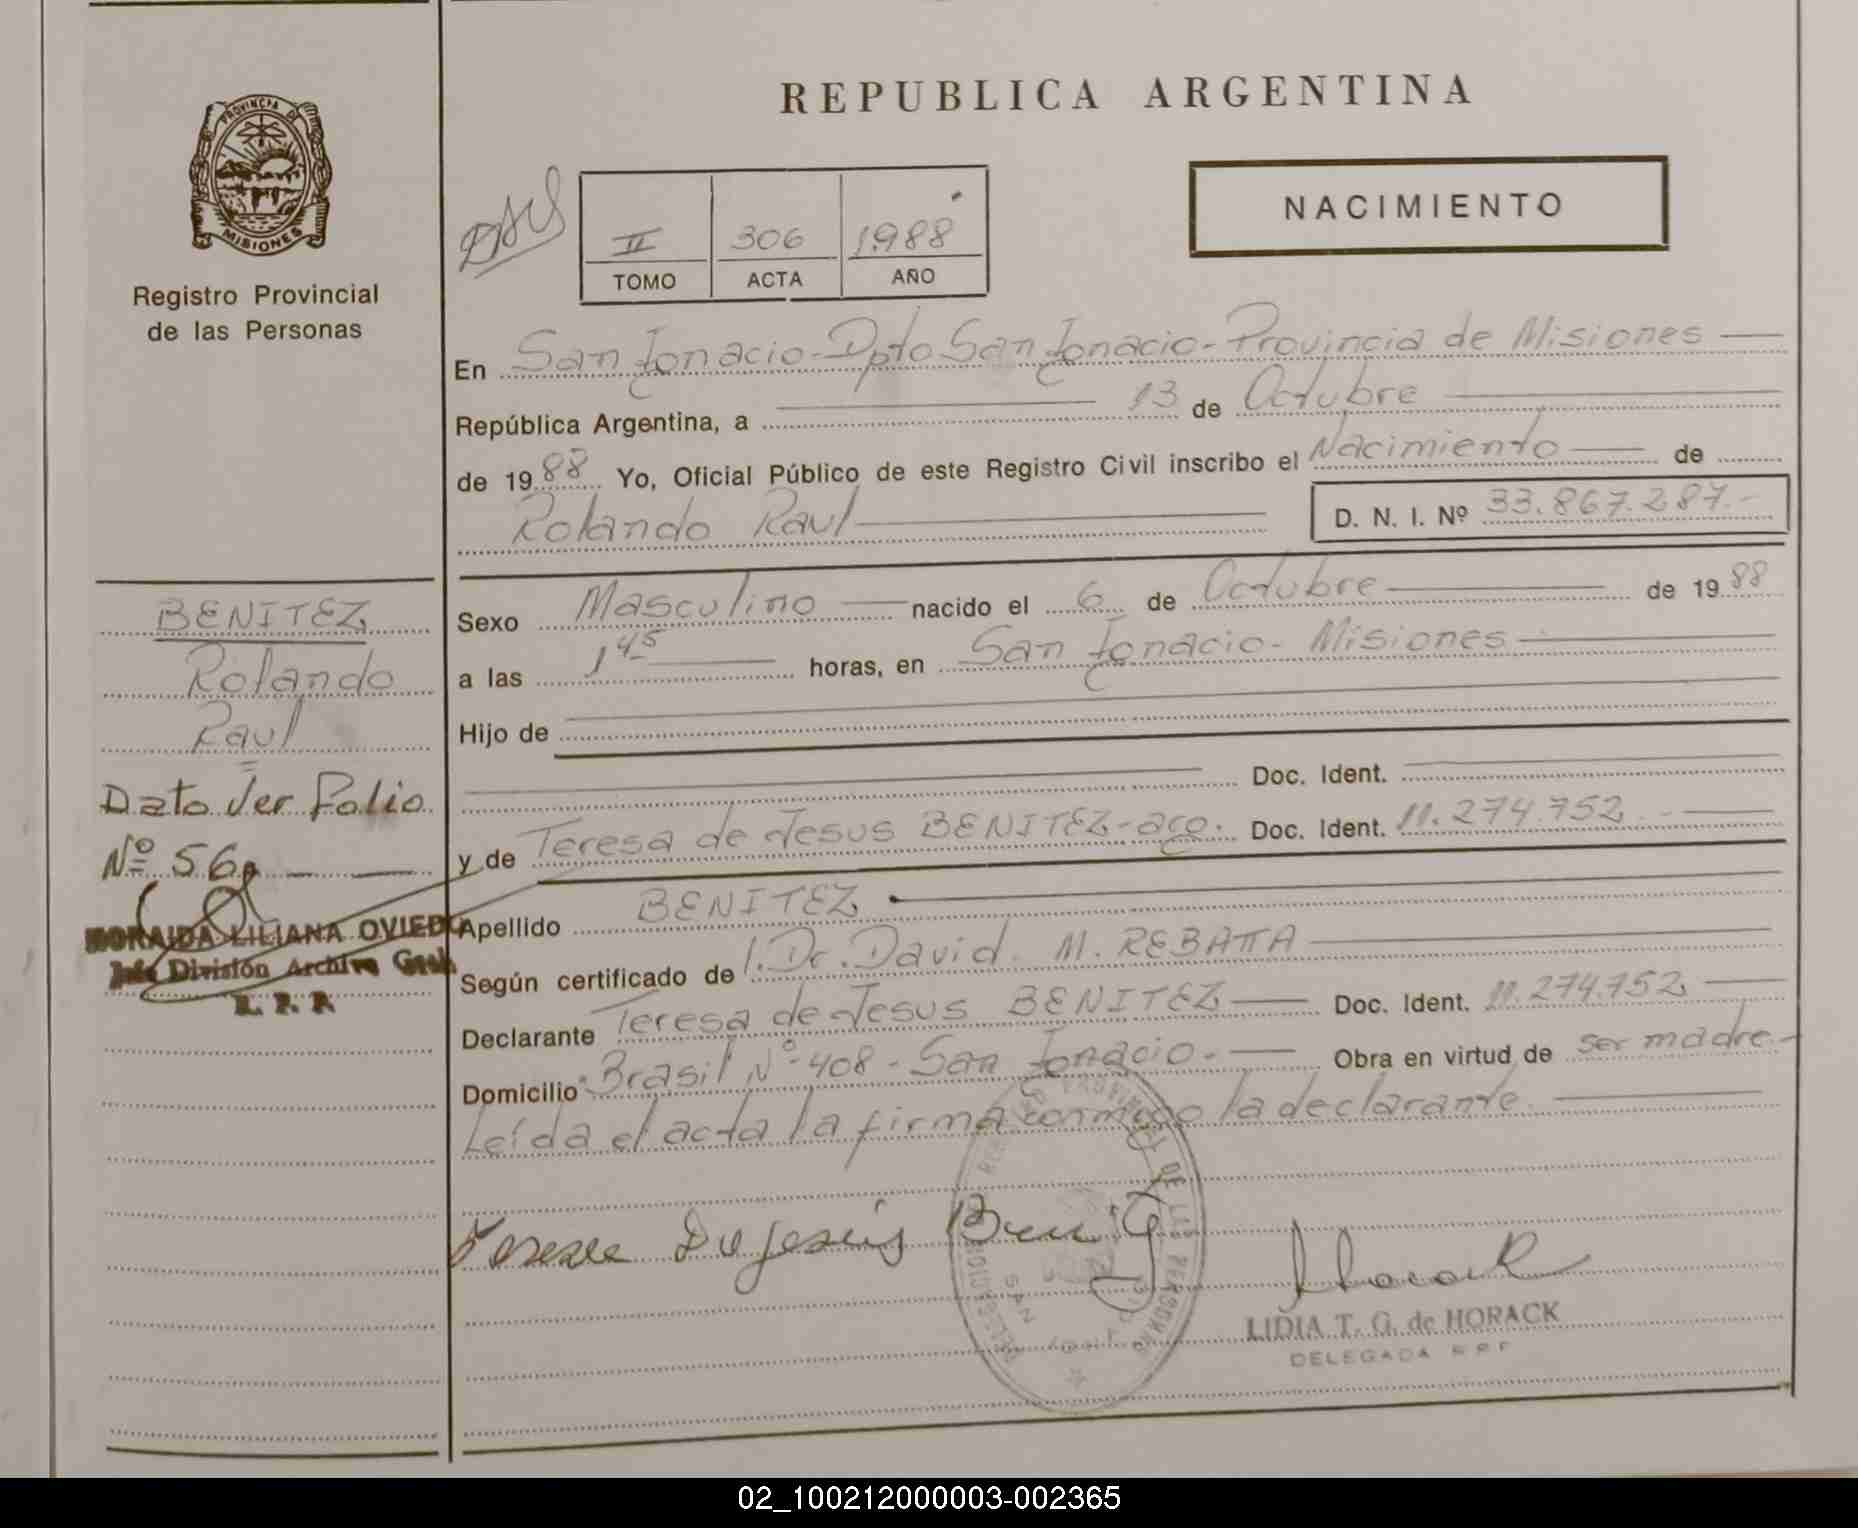 REPUBLICA ARGENTINA
PROVINCIA DE
MISIONES
Registro Provincial
de las Personas
II 306 1988
TOMO ACTA AÑO
NACIMIENTO
En San Ignacio - Dpto San Ignacio - Provincia de Misiones
República Argentina, a 13 de Octubre
de 1988 Yo, Oficial Público de este Registro Civil inscribo el Nacimiento de
Rolando Raul D. N. I. Nº 33.867.287.-
BENITEZ
Rolando
Raul
Dato Ver Folio
Nº 56
MORAIDA LILIANA OVIEDO
Jefe División Archivo Gral.
R. P. P.
Sexo Masculino nacido el 6 de Octubre de 1988
a las 1 45 horas, en San Ignacio - Misiones
Hijo de
Doc. Ident.
y de Teresa de Jesus BENITEZ - arg. Doc. Ident. 11.274.752.-
Apellido BENITEZ
Según certificado de l. Dr. David M. REBATTA
Declarante Teresa de Jesus BENITEZ Doc. Ident. 11.274.752
Domicilio Brasil Nº 408 - San Ignacio.- Obra en virtud de ser madre.-
Leída el acta la firma conmigo la declarante.
Teresa De Jesús Benitez
Horack
LIDIA T. G. de HORACK
DELEGADA R P P
REGISTRO PROVINCIAL DE LAS PERSONAS
DELEGACION
SAN IGNACIO
02_100212000003-002365